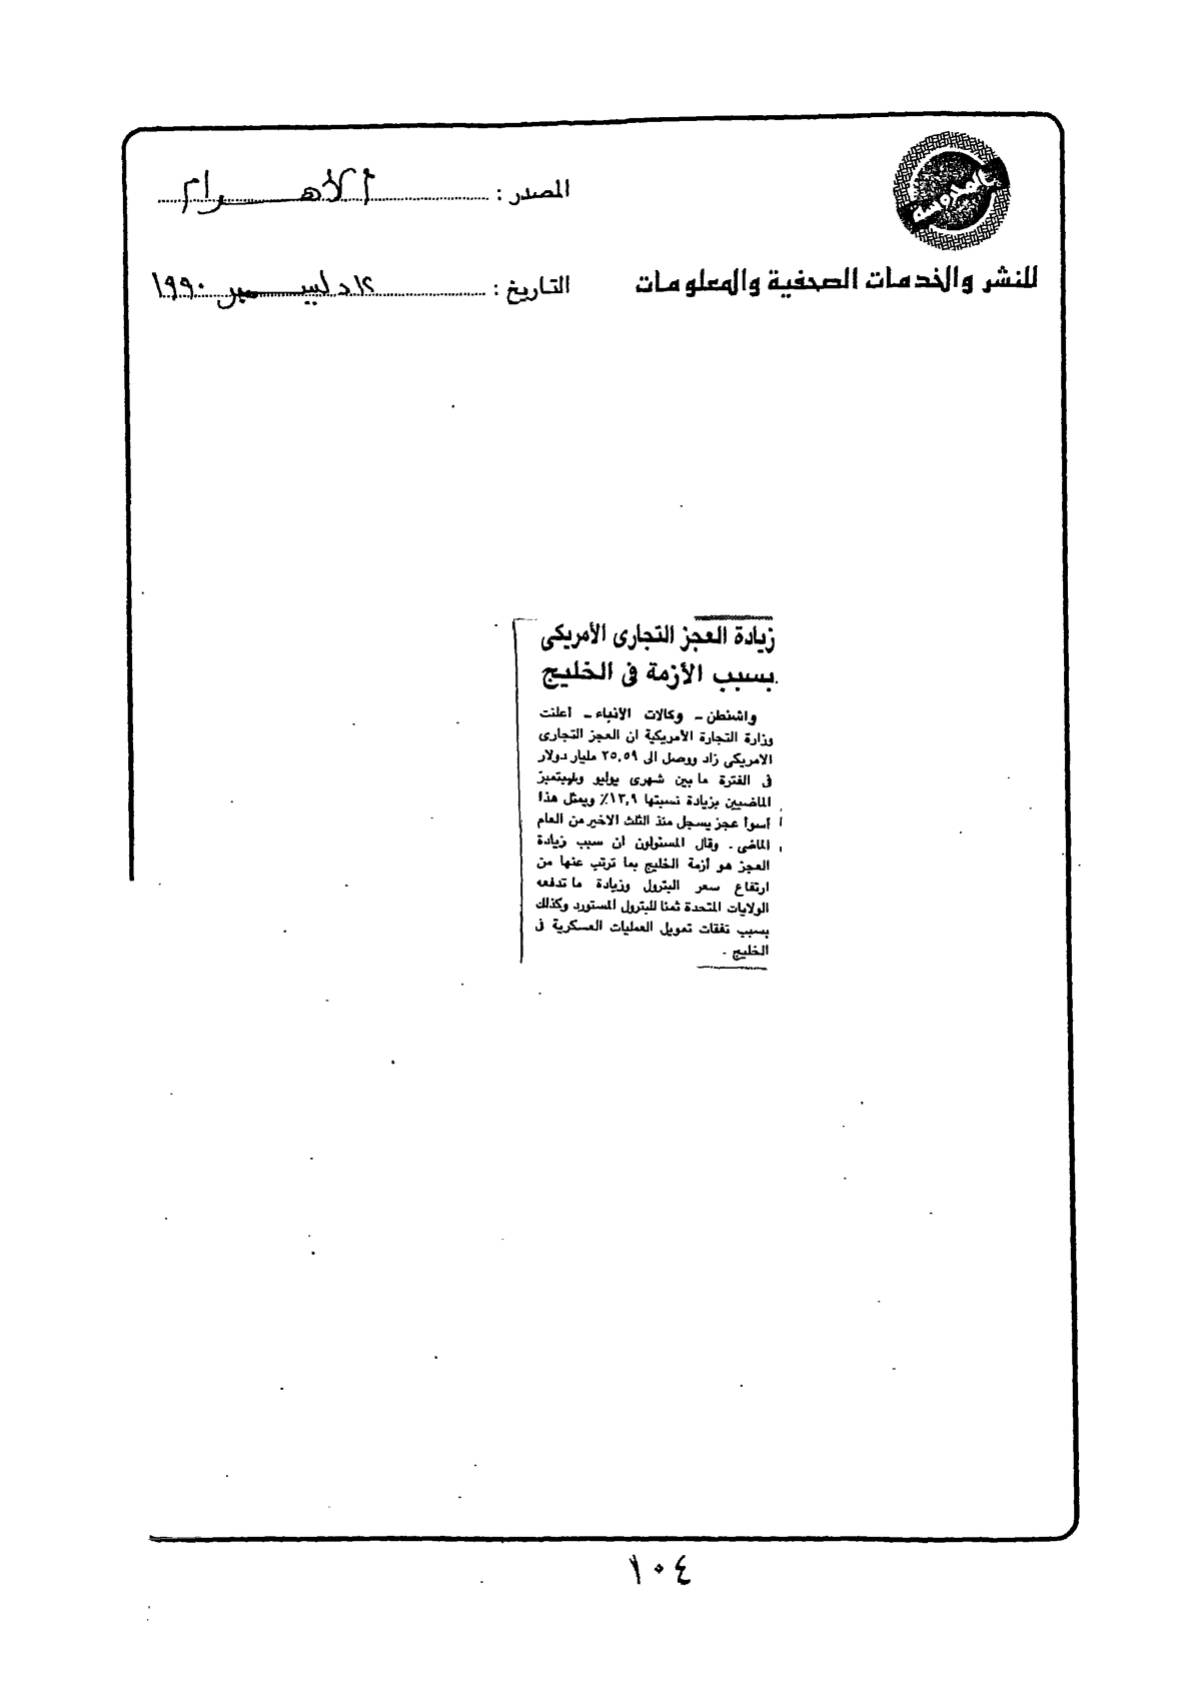 المصدر : الأهرام
للنشر والخدمات الصحفية والمعلومات
التاريخ : ١٢ ديسمبر ١٩٩٠
زيادة العجز التجارى الأمريكى
بسبب الأزمة فى الخليج
واشنطن - وكالات الأنباء - أعلنت
وزارة التجارة الأمريكية ان العجز التجارى
الامريكى زاد ووصل الى ٢٥,٥٩ مليار دولار
فى الفترة ما بين شهرى يوليو وسبتمبر
الماضيين بزيادة نسبتها ١٣,٩٪ ويمثل هذا
أسوأ عجز يسجل منذ الثلث الاخير من العام
الماضى . وقال المسئولون ان سبب زيادة
العجز هو أزمة الخليج بما ترتب عنها من
ارتفاع سعر البترول وزيادة ما تدفعه
الولايات المتحدة ثمنا للبترول المستورد وكذلك
بسبب نفقات تمويل العمليات العسكرية فى
الخليج .
١٠٤